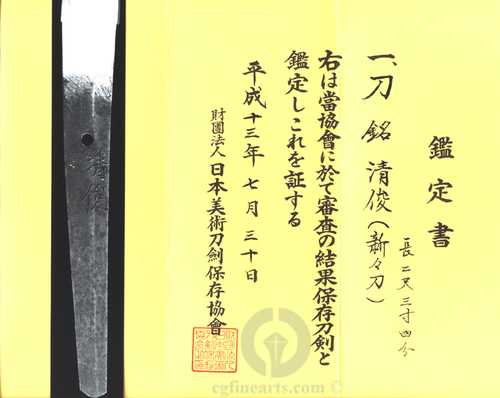 鑑定書
一、刀 銘 清俊(新々刀)
長二尺三寸四分
右は當協會に於て審査の結果保存刀剣と
鑑定しこれを証する
平成十三年七月三十日
財團法人日本美術刀劍保存協會
清俊
cgfinearts.com ©